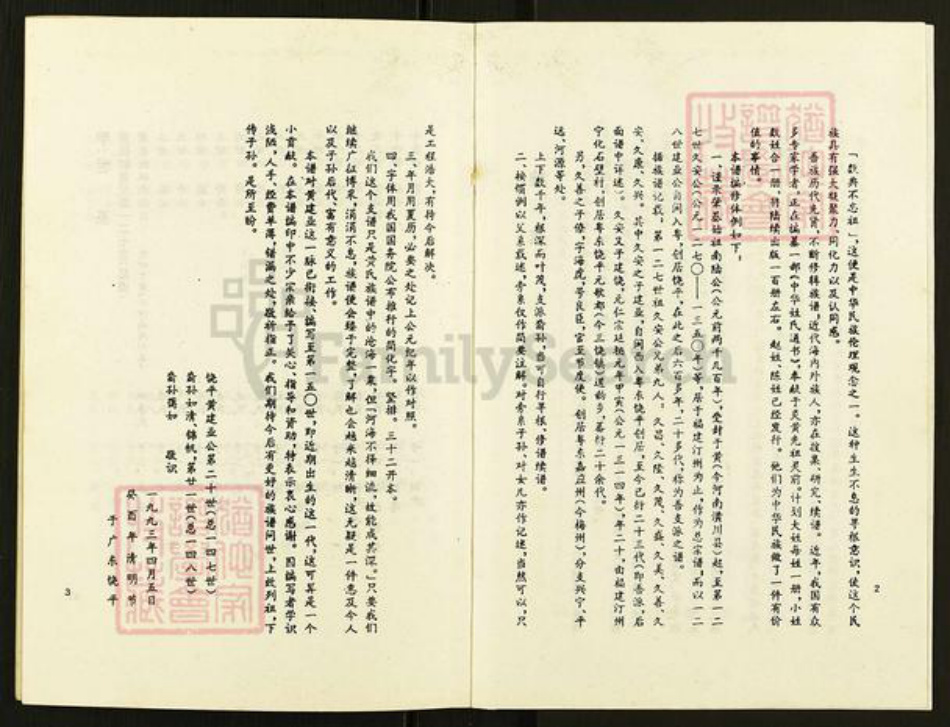 「数典不忘祖」,这便是中华民族伦理观念之一。这种生生不息的寻根意识,使这个民
族具有强大凝聚力、同化力以及认同感。
吾族历代先贤,不断修辑族谱,近代海内外族人,亦在搜集、研究、续谱。近年,我国有众
多专家学者,正在编纂一部《中华姓氏通书》,奉献于炎黄先祖灵前,计划大姓每姓一册,小姓
数姓合一册,将陆续出版一百册左右。赵姓、陈姓已经发行。他们为中华民族做了一件有价
值的事情。
本谱编修体例如下:
一、谨录荣芬始祖南陆公(公元前两千几百年),受封于黄(今河南潢川县)起,至第一二
七世久安公(公元一二七〇——一三五〇年)等,居于福建汀州为止,作为总宗谱;而以一二
八世建业公自闽入粤,创居饶平,在此之后六百多年,二十多代,称为吾支派之谱。
据族谱记载,第一二七世祖久安公兄弟九人,久昌、久隆、久茂、久盛、久美、久善、久
安、久康、久兴。其中久安之子建业,自闽西入粤东饶平创居,至今已衍二十三代(即吾派,后
面谱中详述)。久安又子建饶,元仁宗延祐元年甲寅(公元一三一四年),年二十,由福建汀州
宁化石壁村,创居粤东饶平元歌都(今三饶镇)道韵乡,蕃衍二十余代。
另,久善之子僚,字海虎,号良臣,官至节度使。创居粤东嘉应州(今梅州),分支兴宁、平
远、河源等处。
上下数千年,根深而叶茂,支派裔孙,当可自行寻根、修谱续谱。
二、按惯例以父系载述,旁系仅作简要注解。对旁系子孙、对女儿亦作记述,当然可以,只
2
是工程浩大,有待今后解决。
三、年月用夏历,必要之处记上公元纪年以作对照。
四、字体用我国国务院公布推行的简化字。竖排。三十二开本。
我们这个支谱只是黄氏族谱中的沧海一粟,但「河海不择细流,故能成其深。」只要我们
继续广征博采,涓涓不息,族谱便会臻于完整,了解也会越来越清晰,这无疑是一件惠及今人
以及子孙后代、富有意义的工作。
本谱对黄建业这一脉已衔接、编写至第一五〇世,即近期出生的这一代,这可算是一个
小贡献。在本谱编印中不少宗亲给予了关心、指导和资助,特表示衷心感谢。因编写者学识
浅陋,人手、经费单薄,错漏之处,敬祈指正。我们期待今后有更好的族谱问世,上故列祖,下
传子孙。是所至盼。
饶平黄建业公第二十世(总一四七世)
裔孙如清、锦帆,第廿一世(总一四八世)
裔孙蔼如 敬识
一九九三年四月五日
癸酉年清明节
于广东饶平
3
FamilySearch